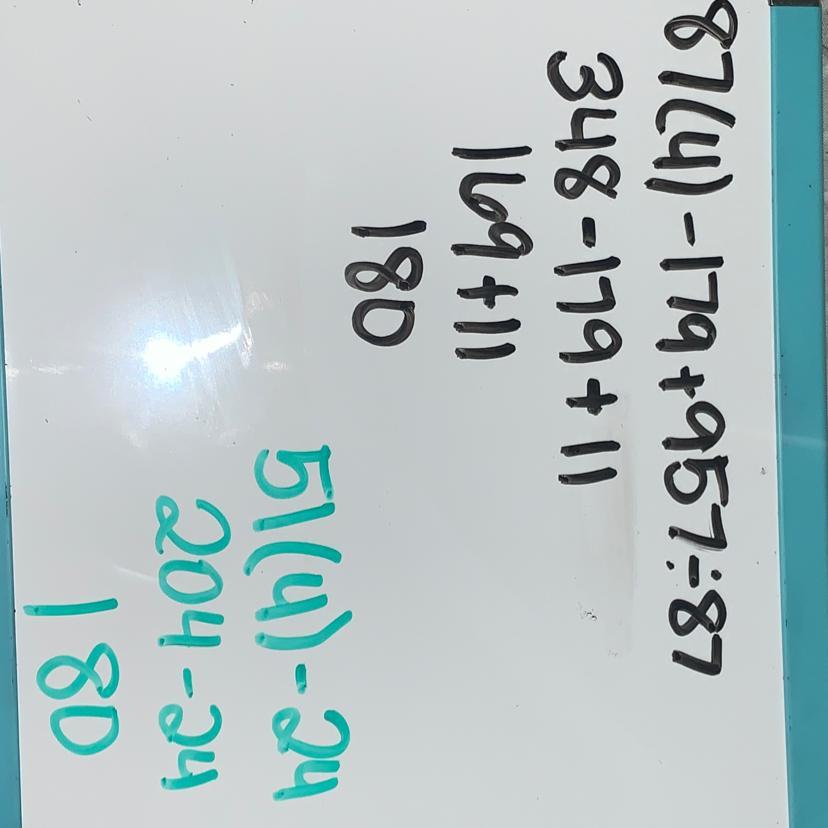 87(4)-179+957÷87
348-179+11
169+11
180
51(4)-24
204-24
180